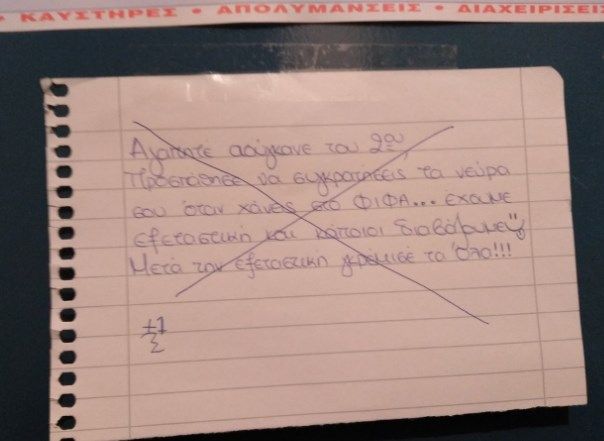 • ΚΑΥΣΤΗΡΕΣ • ΑΠΟΛΥΜΑΝΣΕΙΣ • ΔΙΑΧΕΙΡΙΣΕΙ
Αγαπητέ αούγκανε του 2ου,
Προσπάθησε να συγκρατήσεις τα νεύρα
σου όταν χάνεις στο ΦΙΦΑ... έχουμε
εξεταστική και κάποιοι διαβάζουμε!!
Μετά την εξεταστική γκρέμισέ τα όλα!!!
+1
Σ